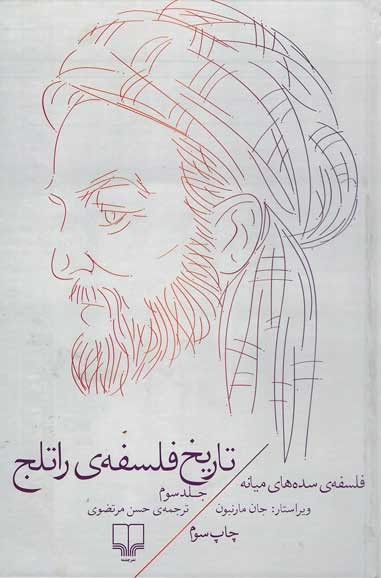 تاریخ فلسفه‌ی راتلج
جلد سوم
فلسفه‌ی سده‌های میانه
ویراستار: جان مارنبون
ترجمه‌ی حسن مرتضوی
چاپ سوم
نشرچشمه